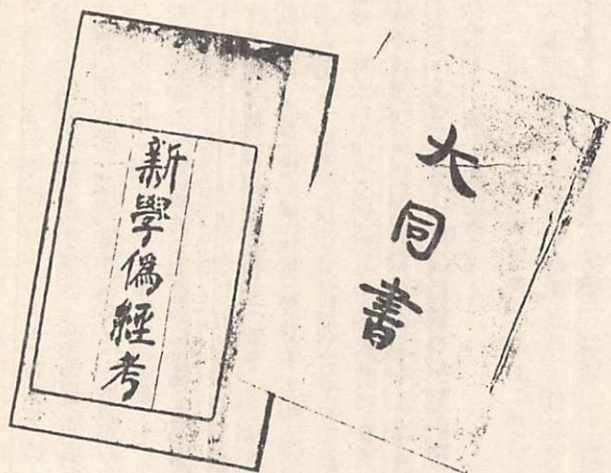 新學偽經考
大同書